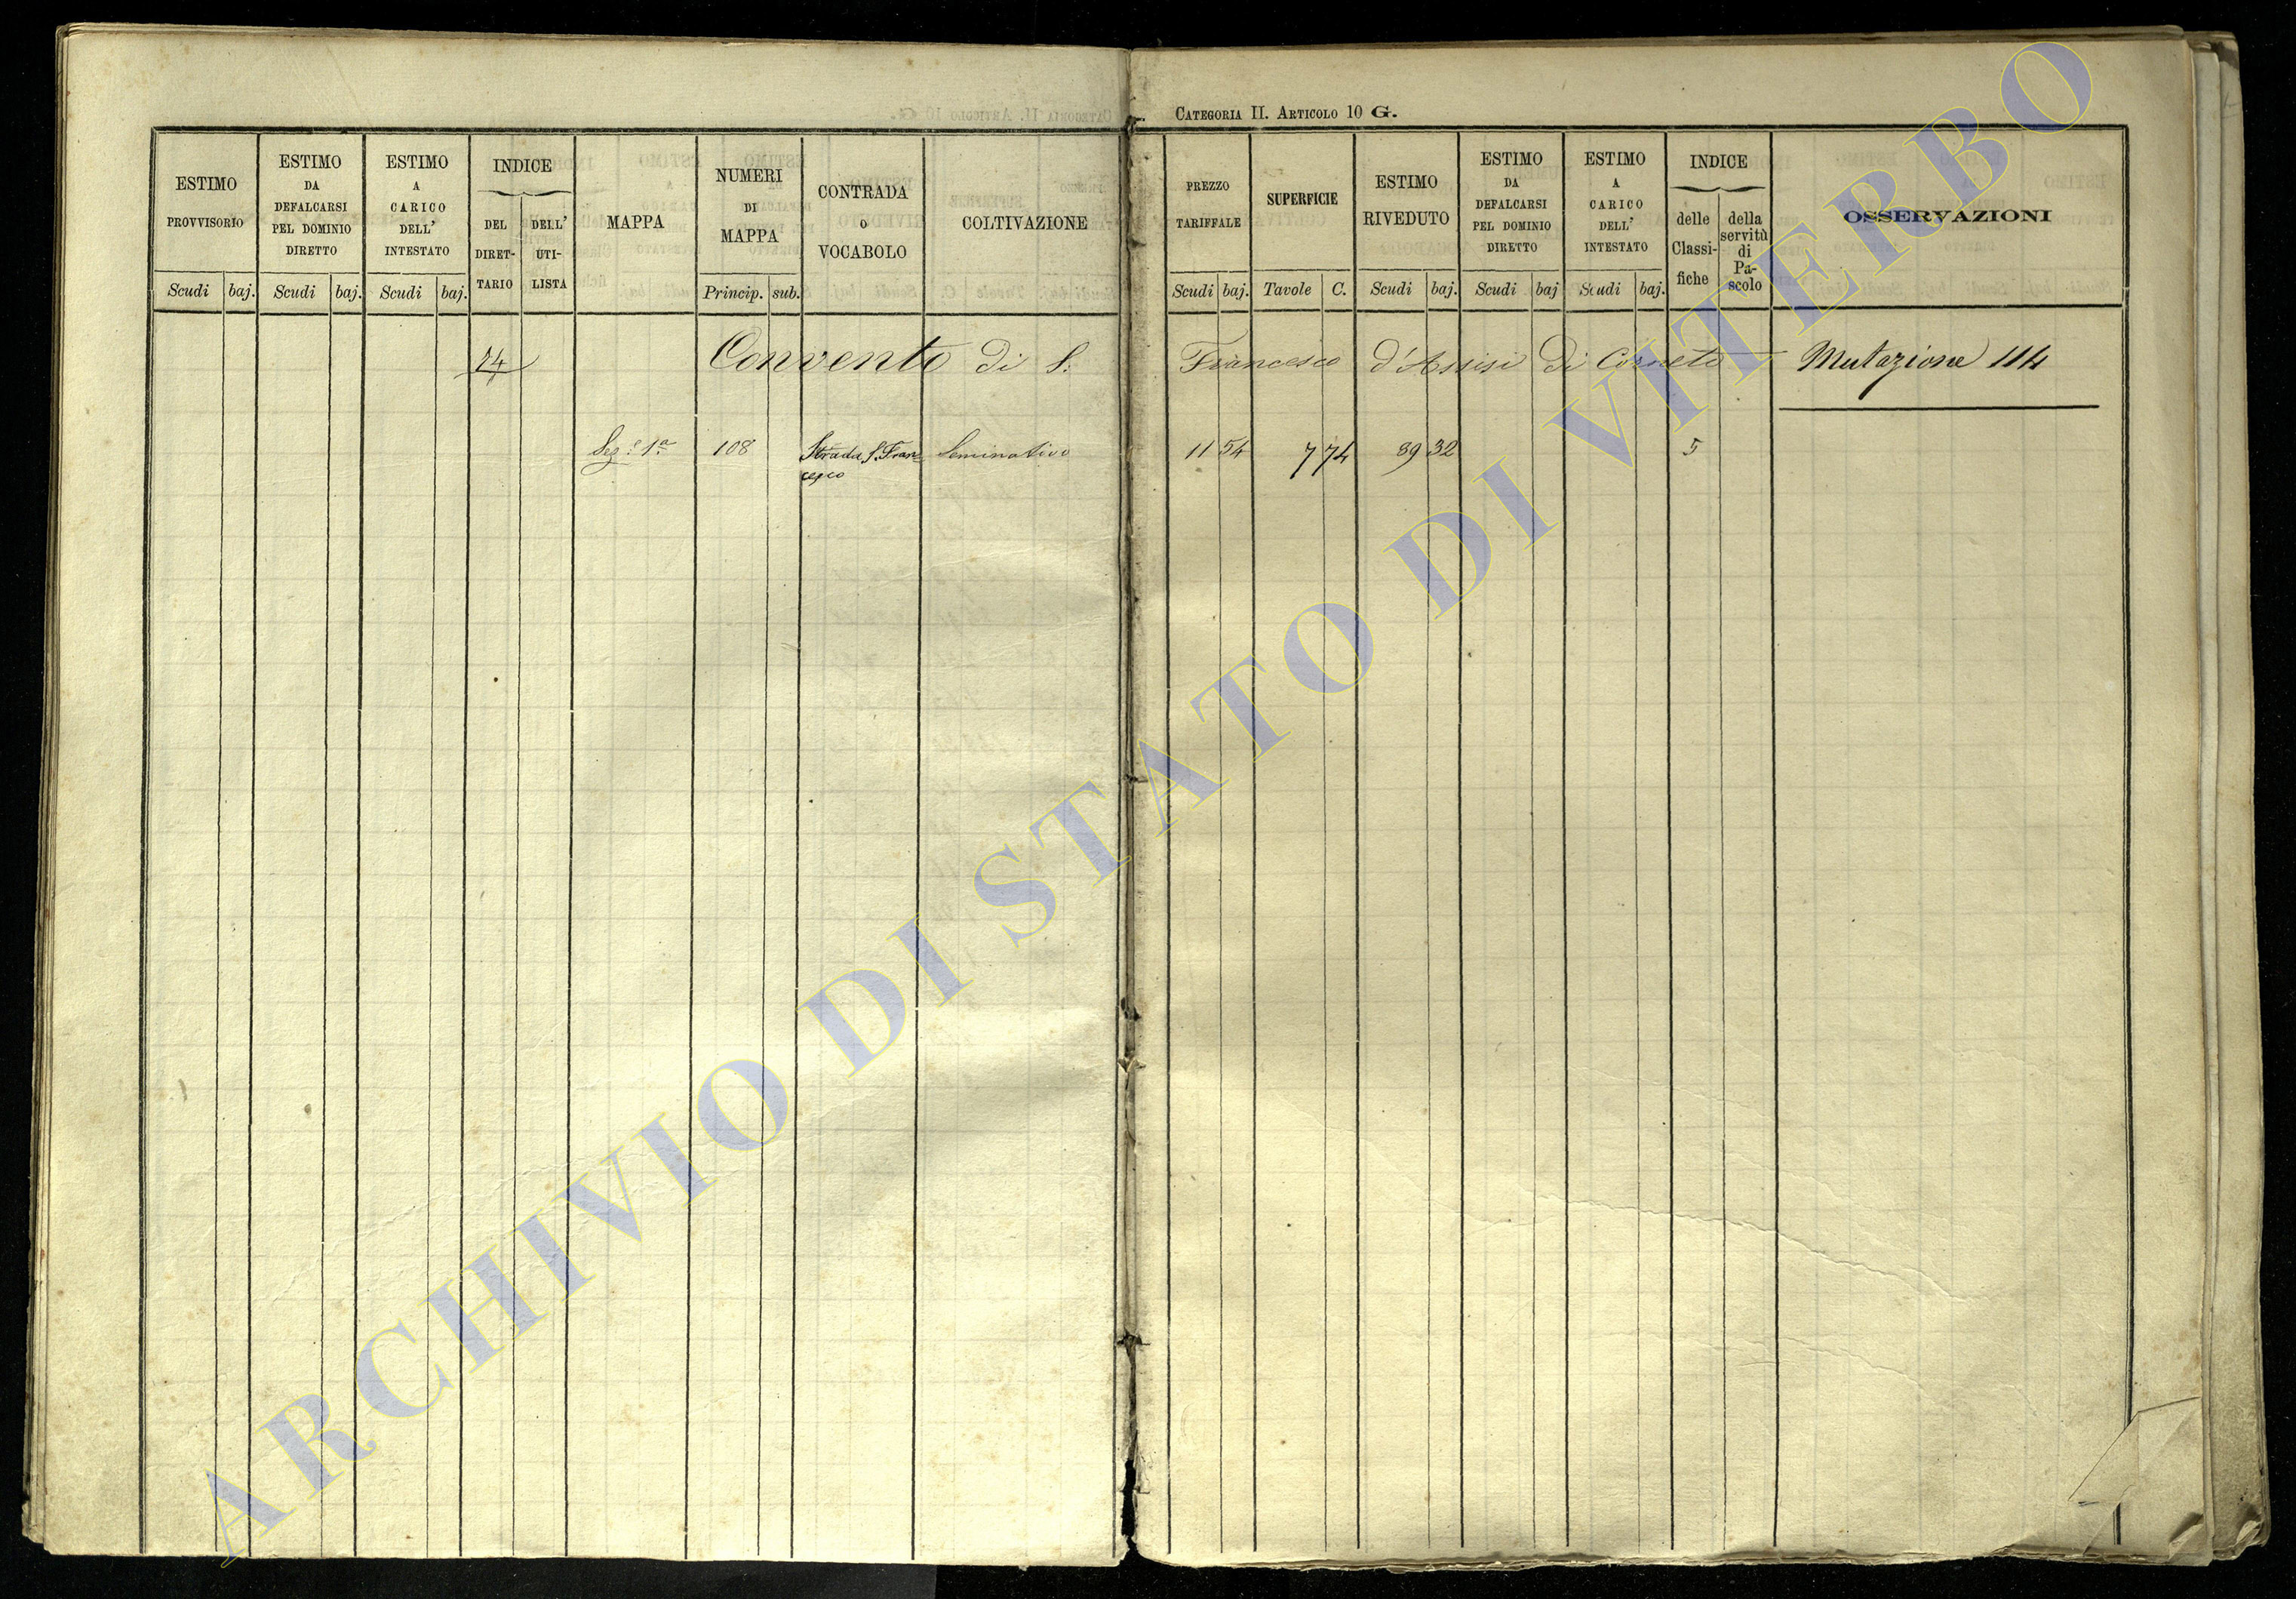 CATEGORIA II. ARTICOLO 10 G.
ESTIMO PROVVISORIO
Scudi baj.
ESTIMO DA DEFALCARSI PEL DOMINIO DIRETTO
Scudi baj.
ESTIMO A CARICO DELL' INTESTATO
Scudi baj.
INDICE
DEL DIRET-
TARIO
DELL' UTI-
LISTA
MAPPA
NUMERI DI MAPPA
Princip. sub.
CONTRADA O VOCABOLO
COLTIVAZIONE
PREZZO TARIFFALE
Scudi baj.
SUPERFICIE
Tavole C.
ESTIMO RIVEDUTO
Scudi baj.
ESTIMO DA DEFALCARSI PEL DOMINIO DIRETTO
Scudi baj
ESTIMO A CARICO DELL' INTESTATO
Scudi baj.
INDICE
delle Classi-
fiche
della servitù di Pa-
scolo
OSSERVAZIONI
Convento di S. Francesco d'Assisi di Corneto Mutazione 114
Sez.e 1a 108 Strada S. Fran= Seminativo 11 54 7 74 89 32 5
cesco
ARCHIVIO DI STATO DI VITERBO